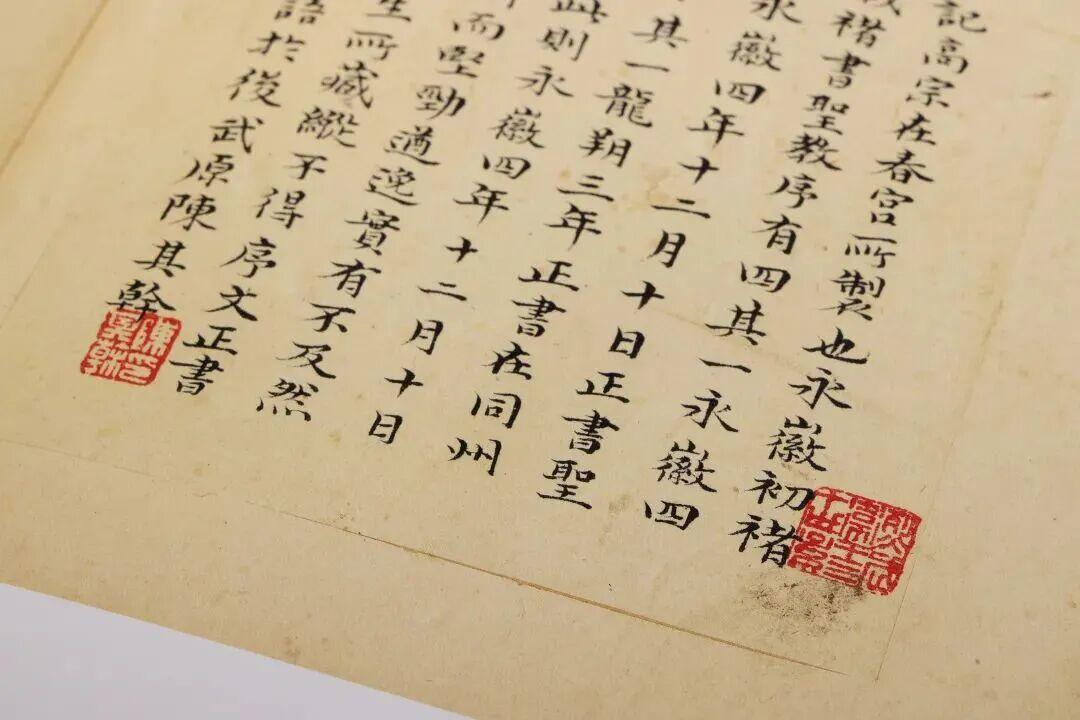 記高宗在春宮所製也永徽初褚
褚書聖教序有四其一永徽四
永徽四年十二月十日正書聖
其一龍朔三年正書在同州
此則永徽四年十二月十日
而堅勁遒逸實有不及然
生所藏縱不得序文正書
語於後武原陳其幹